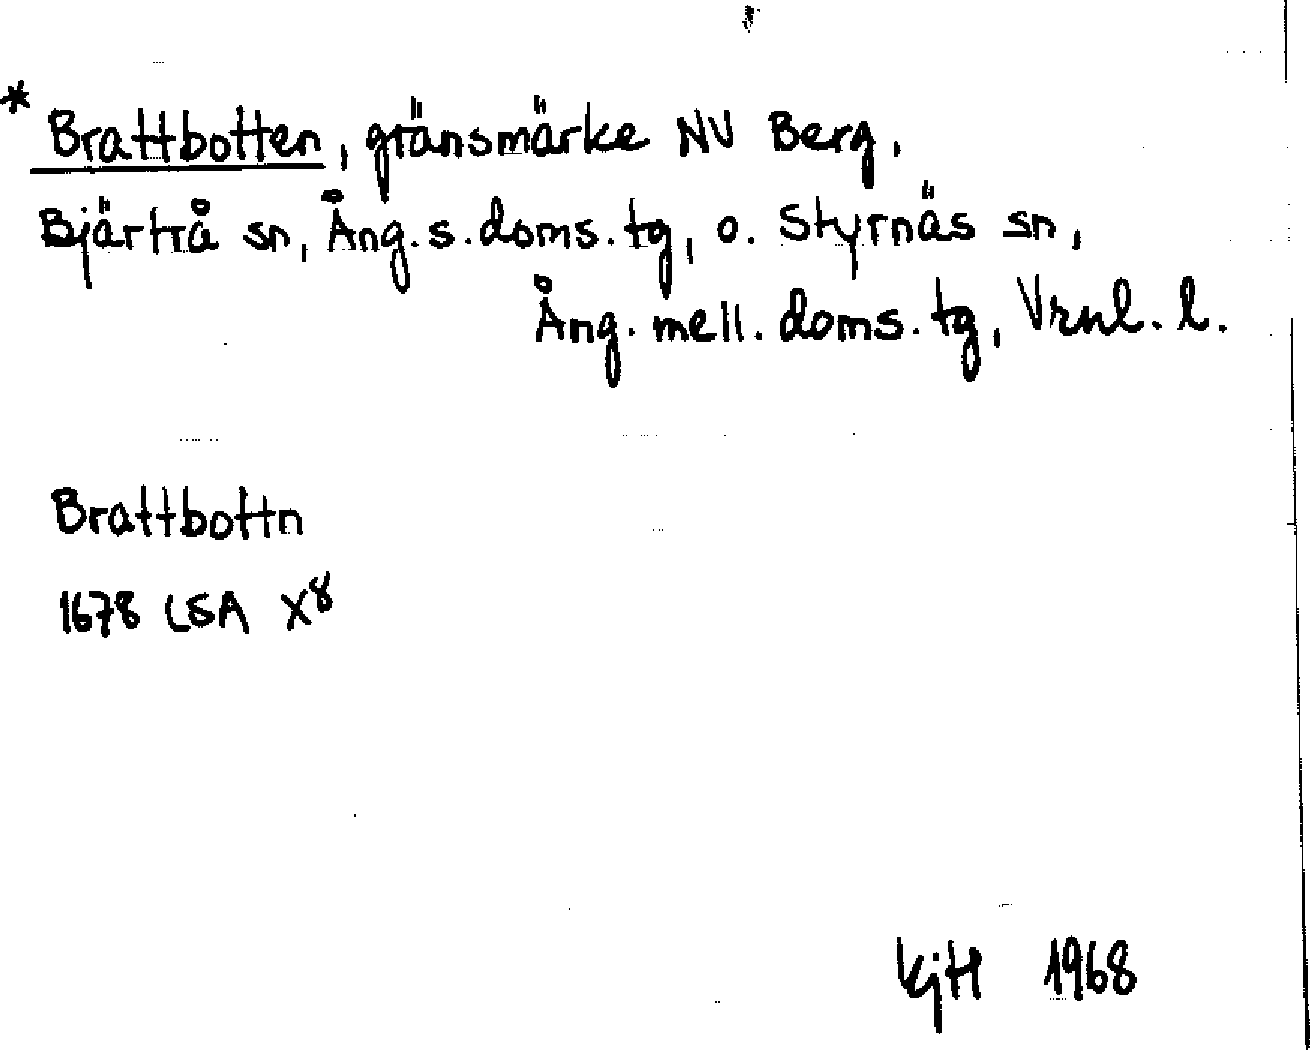 * Brattbotten, gränsmärke NV Berg,
Bjärtrå sn, Ång.s.doms.tg, o. Styrnäs sn,
Ång. mell. doms. tg, Vrnl. l.
Brattbottn
1678 LSA X8
KjH 1968